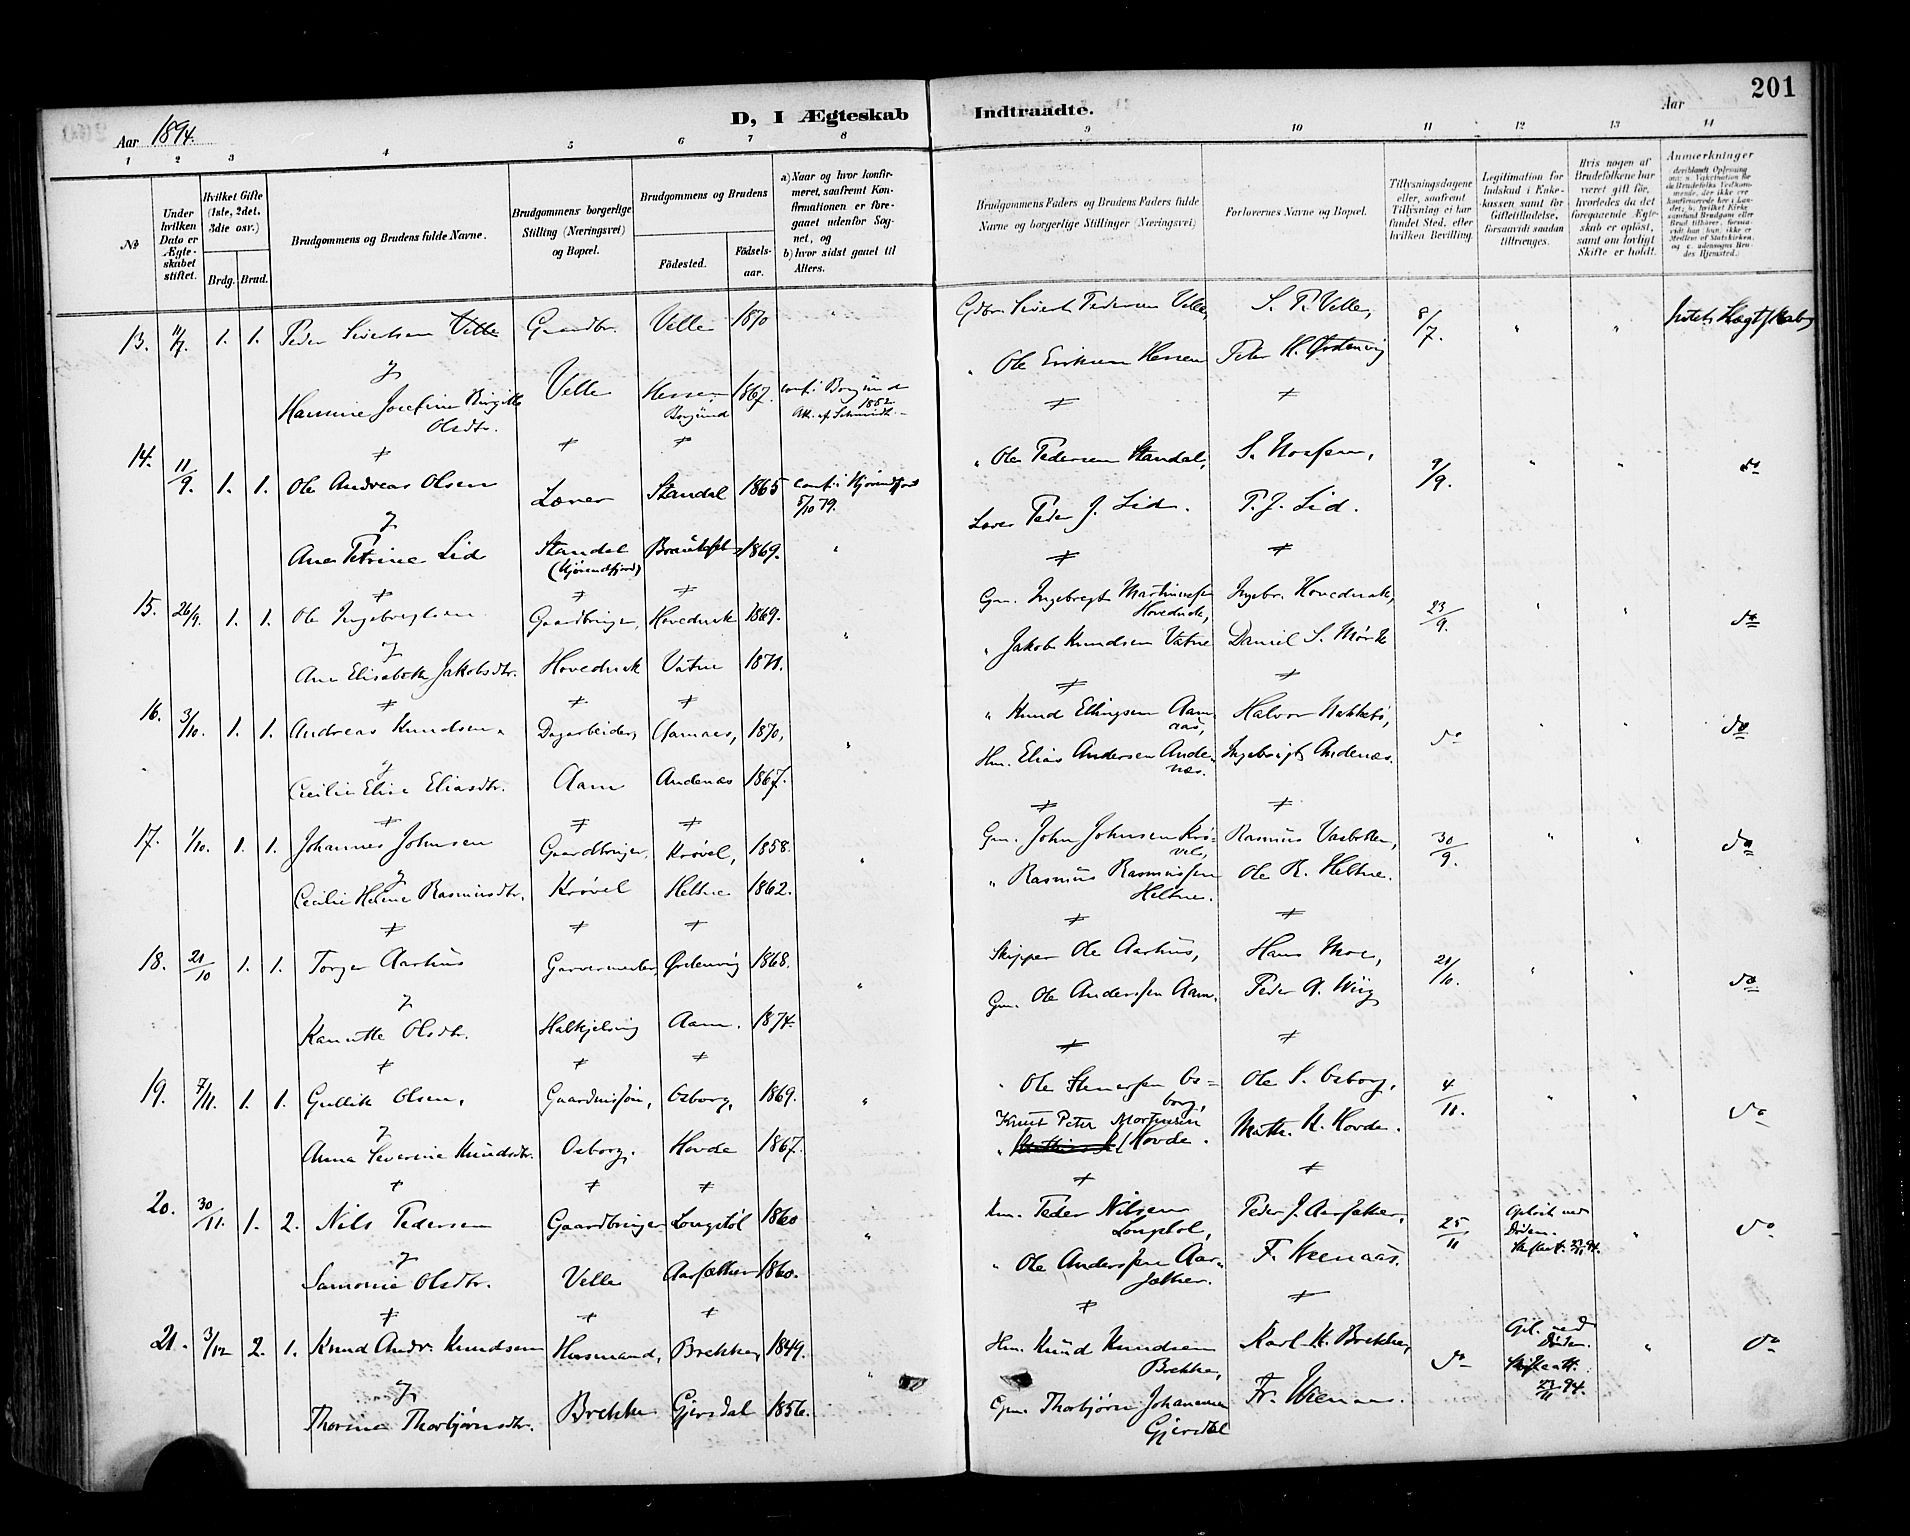 201
D, I Ægteskab Indtraadte.
Aar 1894.
Aar
1 2 3 4 5 6 7 8 9 10 11 12 13 14
No
Under hvilken Dato er Ægteskabet stiftet.
Hvilket Gifte (1ste, 2det, 3die osv.)
Brdg. Brud.
Brudgommens og Brudens fulde Navne.
Brudgommens borgerlige Stilling (Næringsvei) og Bopæl.
Brudgommens og Brudens
Fødested.
Fødsels-aar.
a) Naar og hvor konfirmeret, saafremt Konfirmationen er foregaaet udenfor Sognet, og
b) hvor sidst gaaet til Alters.
Brudgommens Faders og Brudens Faders fulde Navne og borgerlige Stillinger (Næringsvei)
Forlovernes Navne og Bopæl.
Tillysningsdagene eller, saafremt Tillysning ei har fundet Sted, efter hvilken Bevilling.
Legitimation for Indskud i Enkekassen samt for Giftetilladelse, forsaavidt saadan tiltrænges.
Hvis nogen af Brudefolkene har været gift før, hvorledes da det foregaaende Ægteskab er opløst, samt om lovligt Skifte er holdt.
Anmærkninger
13. 11/7. 1. 1. Peder Sivertsen Velle Gaardbr. Velle 1870 " Gdbr. Sivert Pedersen Velle, S. P. Velle, 8/7. " "
&
Hansine Josefine Birgitte Olsdtr. Velle Hessen Borgund 1867. conf. i Borgund 1882 " Ole Eriksen Hessen Peter K. Ørstenvig
14. 11/9. 1. 1. Ole Andreas Olsen Læner Standal 1865 conf. i Hjørundfjord 5/10 79. " Ole Pedersen Standal, S. Mossen, 9/9. " " do
&
Ane Petrine Lid Standal (Hjørundfjord) 1869. " Peder J. Lid. P. J. Lid.
15. 26/9. 1. 1. Ole Ingebregtsen Gaardbruger, Hovedneset 1869. " Gm. Ingebregt Martinussen 23/9. " " do
&
Ane Elisabeth Jakobsdtr. Vatne 1871. " Jakob Knudsen Vatne Daniel S. Mørk
16. 3/10. 1. 1. Andreas Knudsen. Dagarbeider, Aamnes, 1870, " " Knud Ellingsen Aamnes, Halvor do " " do
&
Cecilie Elise Eliasdtr. Aam Andenæs 1867. Hm. Elias Andersen Andenæs. Ingebrigt Andenæs.
17. 1/10. 1. 1. Johannes Johnsen Gaardbruger, Krøvel, 1858. " Gm. John Johnsen Krøvel, Rasmus Vasbotten, 30/9. " " do
&
Cecilie Helene Rasmusdtr. Krøvel Heltne 1862. " Rasmus Rasmussen Heltne. Ole R. Heltne.
18. 21/10 1. 1. Torger Aarhus Garvermester, Ørstenvig 1868. " Skipper Ole Aarhus, Hans Moe, 21/10. " " do
&
Kanutte Olsdtr. Halkjelsvig Aam. 1874. Gm. Ole Anderssen Aam. Peder A. Wiig
19. 7/11. 1. 1. Gullik Olsen, Osborg, 1869. " " Ole Stenersen Osborg, Ole S. Osborg, 4/11. " " do
&
Anna Severine Knudsdtr. Osborg. Hovde 1867. Knut Peter Mortensen Hovde. Math. K. Hovde.
20. 30/11. 1. 2. Nils Pedersen Gaardbruger Longstøl 1860 " Hm. Peder Nilsen Longstøl, Peder J. Aarsæther, 25/11 Opløst ved Døden. " do
&
Samonie Olsdtr. Velle Aarsæther 1860. " Ole Anderssen Aarsæther. F. Weenaas.
21. 3/12 2. 1. Knud Andr. Knudsen Husmand, Brekke, 1849. " Hm. Knud Knudsen Brekke, Karl K. Brekke, do Opl. ved Døden. Skifteatt. 27/11 94. " do
&
Thorine Thorbjørnsdtr. Brekke Gjersdal 1856. Gm. Thorbjørn Johannesen Gjersdal Fr. Weenaas.